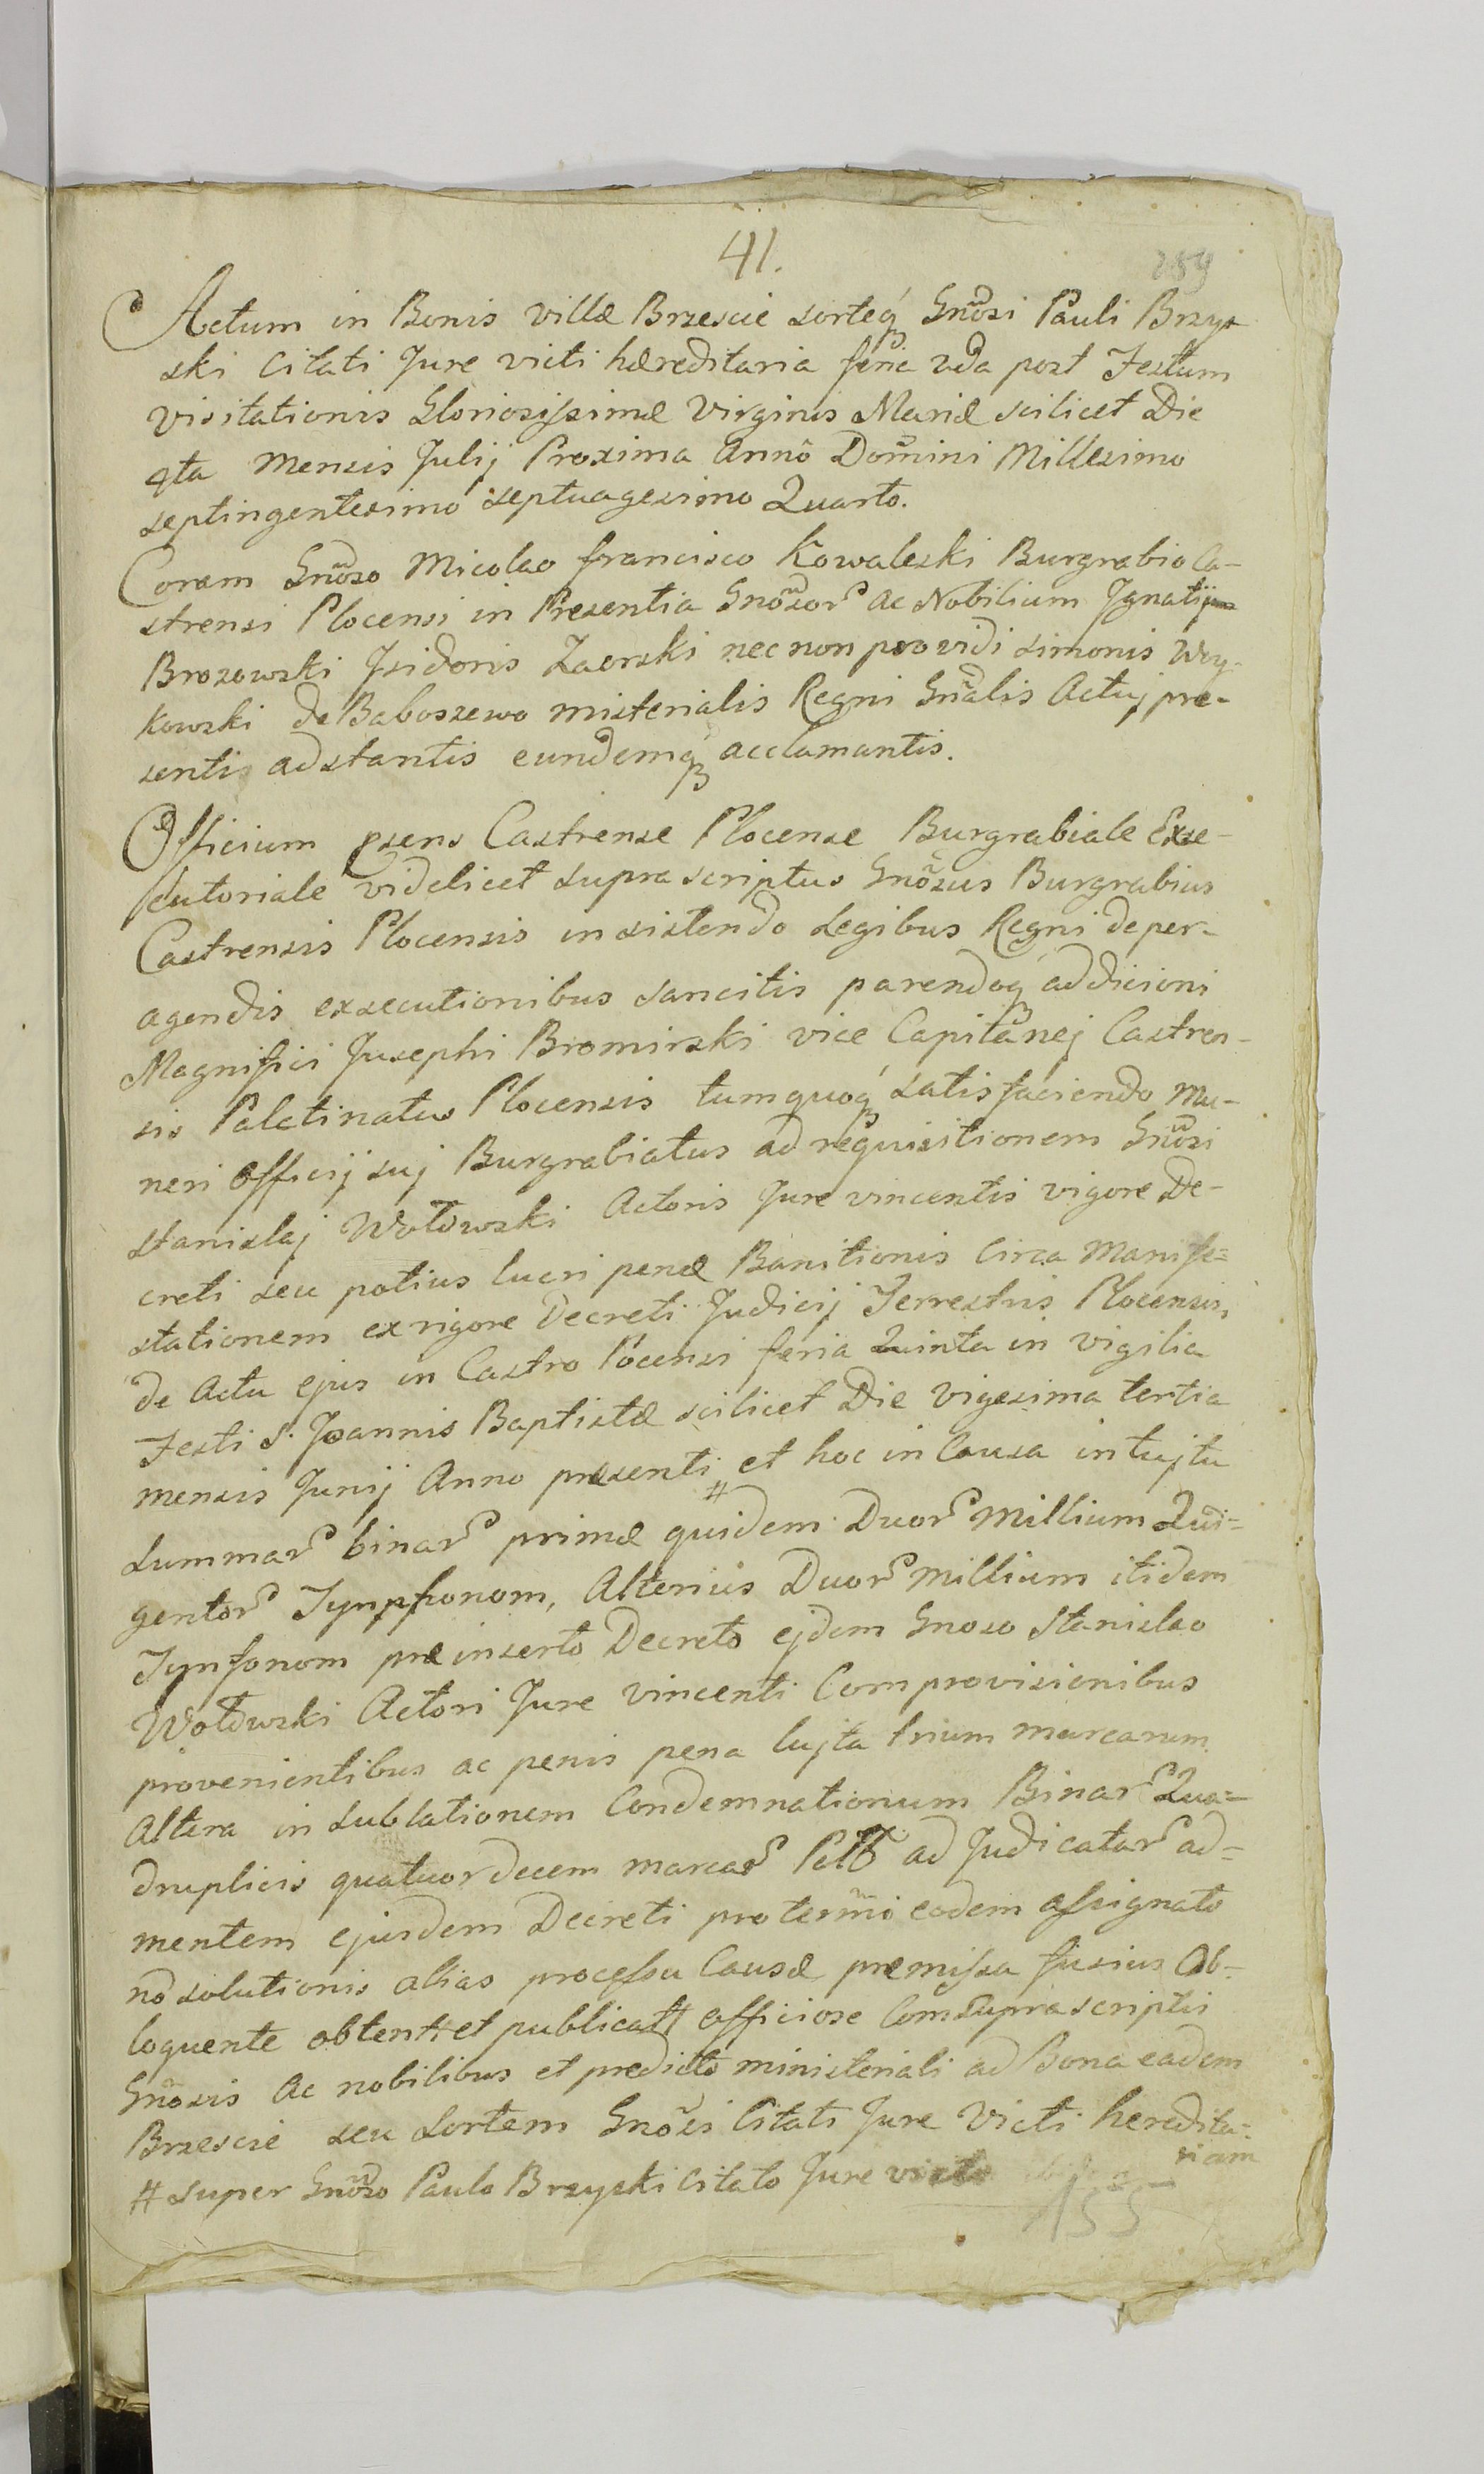 41.
289
Actum in Bonis villæ Brzescie sorteq́ Gnõsi Pauli Brzys
ski Citati Jure victi hæreditaria feria 2da post Festum
visitationis Gloriosissimæ Virginis Mariæ scilicet Die
4ta Mensis Julij Proxima Annô Domini Millesimo
septingentesimo septuagesimo Quarto.
Coram Gnõso Micolao francisco Kowaleski Burgrabio Ca-
strensi Plocensi in Presentia Gnõsor ac Nobilium Jgnatij
Brozowski Jsidoris Zaorski nec non providi simonis Woy-
kowski de Baboszewo misterialis Regni Gnãlis Actuj pre-
sentis adstantis eundemq́ acclamantis.
Officium psens Castrense Plocense Burgrabiale Exse-
cutoriale videlicet supra scriptus Gnõsus Burgrabius
Castrensis Plocensis insistendo Legibus Regni de per-
agendis exsecutionibus sancitis parendoq́ addicioni
Magnifici Jusephi Bromirski vice Capitanej Castren-
sis Palatinatus Plocensis tumquoq́ satisfaciendo mu-
neri officij suj Burgrabiatus ad requisitionem Gnõsi
stanislaj Wołowski Actoris Jure vincentis vigore De-
creti seu potius lucri penæ Banitionis Circa Manife=
stationem ex rigore Decreti Judicij Terrestris Plocensis,
de Actu ejus in Castro Pocensi feria Quinta in vigilia
Festi S. Joannis Baptistæ scilicet Die vigesima tertia
mensis Junij Anno presenti # et hoc in Causa intujtu
summar binar primæ quidem Duor Millium Qui=
gentor Tynpfonom, Alterius Duor Millium itidem
Tynfonom præinserto Decreto ejdem Gnoso Stanislao
Wołowski Actori Jure vincenti Com provisionibus
provenientibus ac penis pena lujta trium marcarum
Altera in sublationem Condemnationum Binar Qua=
druplicis quatuordecem marcar Poll ad Judicatar ad=
mentem ejusdem Decreti pro termi eodem assignato
nõ solutionis alias processu Causæ premissa fusius Ob-
loquente obtent et publicat officiose Com supra scriptis
Gnõsis Ac nobilibus et predicto ministeriali ad Bona eadem
Brzescie seu sortem Gnõsi Citati Jure Victi heredita=
riam
# super Gnõso Paulo Brzyski Citato Jure victo
155